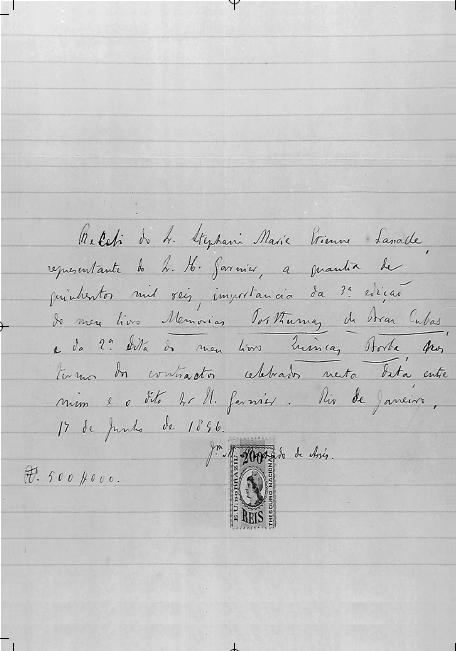 Recebi do Sr. Stephani Marie Etienne Lassalle,
representante do Sr. H. Garnier, a quantia de
quinhentos mil reis, importancia da 3ª edição
do meu livro Memorias Posthumas de Braz Cubas,
e da 2ª dita do meu livro Quincas Borba, nos
termos dos contractos celebrados nesta data entre
mim e o dito Sr H. Garnier. Rio de Janeiro,
17 de Junho de 1896.
Jm M. Machado de Assis.
R. 500$000.
200
E.U. DO BRAZIL
THESOURO NACIONAL
REIS